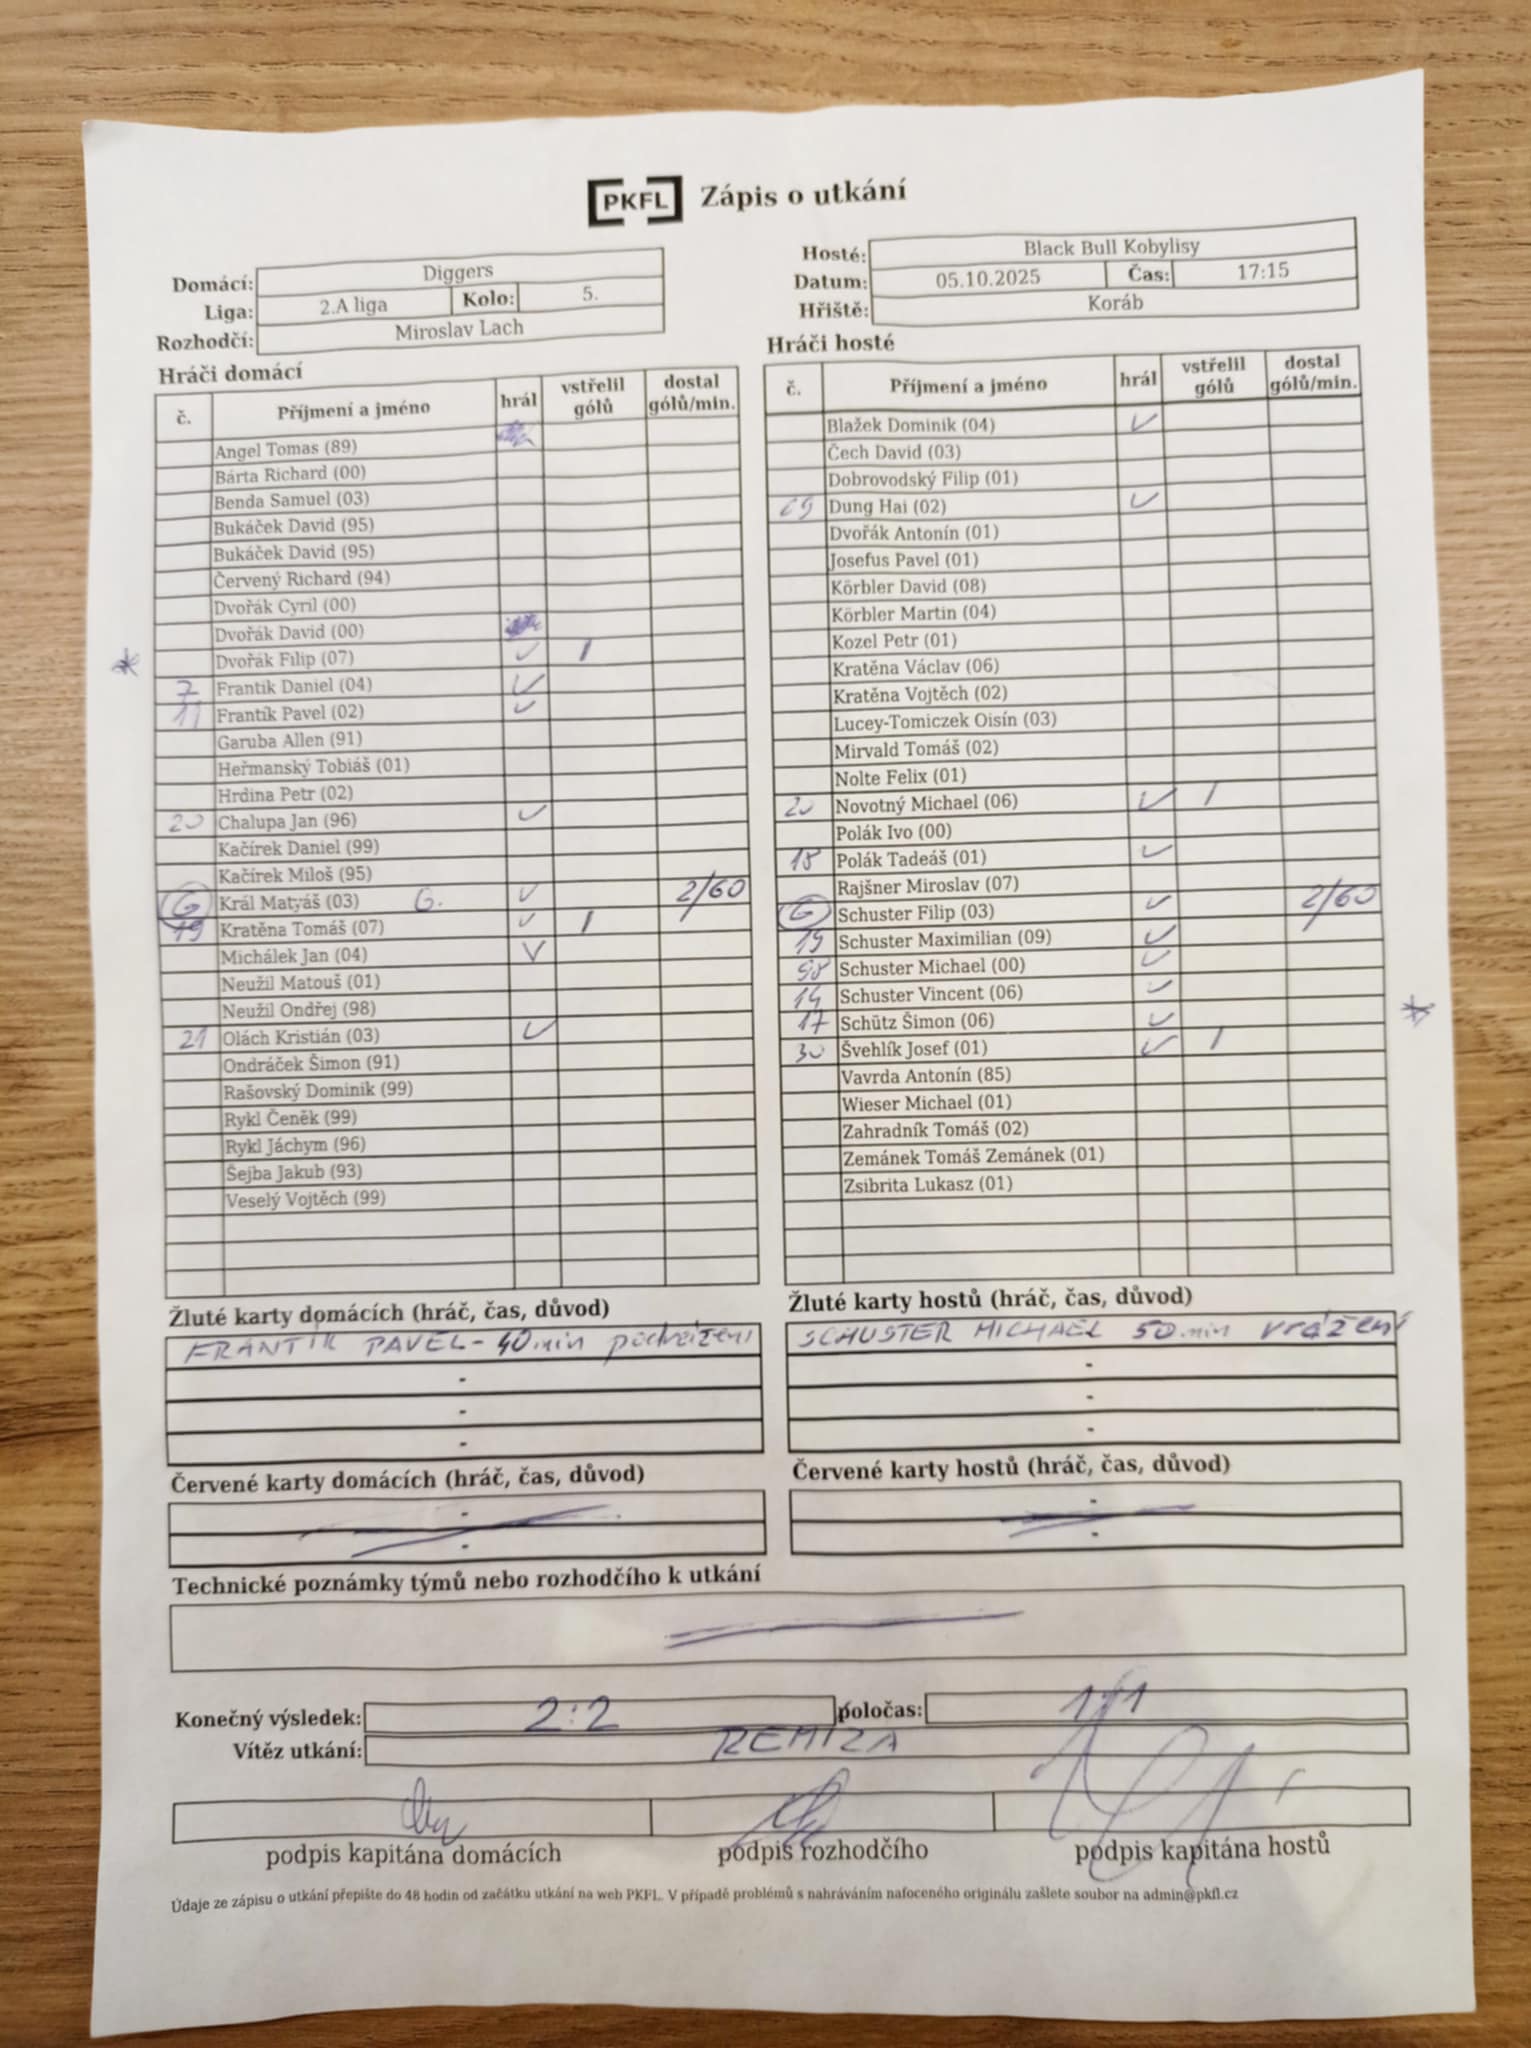 PKFL Zápis o utkání
Domácí: Diggers
Liga: 2.A liga Kolo: 5.
Rozhodčí: Miroslav Lach
Hosté: Black Bull Kobylisy
Datum: 05.10.2025 Čas: 17:15
Hřiště: Koráb
Hráči domácí
č. Příjmení a jméno hrál vstřelil gólů dostal gólů/min.
Angel Tomas (89)
Bárta Richard (00)
Benda Samuel (03)
Bukáček David (95)
Bukáček David (95)
Červený Richard (94)
Dvořák Cyril (00)
Dvořák David (00)
* Dvořák Filip (07) ✓ 1
7 Frantík Daniel (04) ✓
11 Frantík Pavel (02) ✓
Garuba Allen (91)
Heřmanský Tobiáš (01)
Hrdina Petr (02)
20 Chalupa Jan (96) ✓
Kačírek Daniel (99)
Kačírek Miloš (95)
G Král Matyáš (03) G. ✓ 2/60
19 Kratěna Tomáš (07) ✓ 1
Michálek Jan (04) ✓
Neužil Matouš (01)
Neužil Ondřej (98)
21 Olách Kristián (03) ✓
Ondráček Šimon (91)
Rašovský Dominik (99)
Rykl Čeněk (99)
Rykl Jáchym (96)
Šejba Jakub (93)
Veselý Vojtěch (99)
Hráči hosté
č. Příjmení a jméno hrál vstřelil gólů dostal gólů/min.
Blažek Dominik (04) ✓
Čech David (03)
Dobrovodský Filip (01)
69 Dung Hai (02) ✓
Dvořák Antonín (01)
Josefus Pavel (01)
Körbler David (08)
Körbler Martin (04)
Kozel Petr (01)
Kratěna Václav (06)
Kratěna Vojtěch (02)
Lucey-Tomiczek Oisín (03)
Mirvald Tomáš (02)
Nolte Felix (01)
20 Novotný Michael (06) ✓ 1
Polák Ivo (00)
18 Polák Tadeáš (01) ✓
Rajšner Miroslav (07)
G Schuster Filip (03) ✓ 2/60
19 Schuster Maximilian (09) ✓
98 Schuster Michael (00) ✓
14 Schuster Vincent (06) ✓
17 Schütz Šimon (06) ✓ *
30 Švehlík Josef (01) ✓ 1
Vavrda Antonín (85)
Wieser Michael (01)
Zahradník Tomáš (02)
Zemánek Tomáš Zemánek (01)
Zsibrita Lukasz (01)
Žluté karty domácích (hráč, čas, důvod)
FRANTÍK PAVEL - 40 min podražení
-
-
-
Žluté karty hostů (hráč, čas, důvod)
SCHUSTER MICHAEL 50 min vrážení
-
-
-
Červené karty domácích (hráč, čas, důvod)
-
-
Červené karty hostů (hráč, čas, důvod)
-
-
Technické poznámky týmů nebo rozhodčího k utkání
Konečný výsledek: 2:2 poločas: 1:1
Vítěz utkání: REMÍZA
podpis kapitána domácích podpis rozhodčího podpis kapitána hostů
Údaje ze zápisu o utkání přepište do 48 hodin od začátku utkání na web PKFL. V případě problémů s nahráváním nafoceného originálu zašlete soubor na admin@pkfl.cz